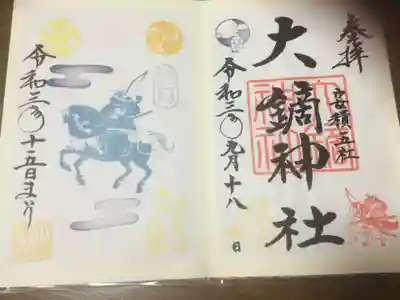 奉拝
安積五社
大鏑神社
令和三年九月十八日
令和三年十五日まいり